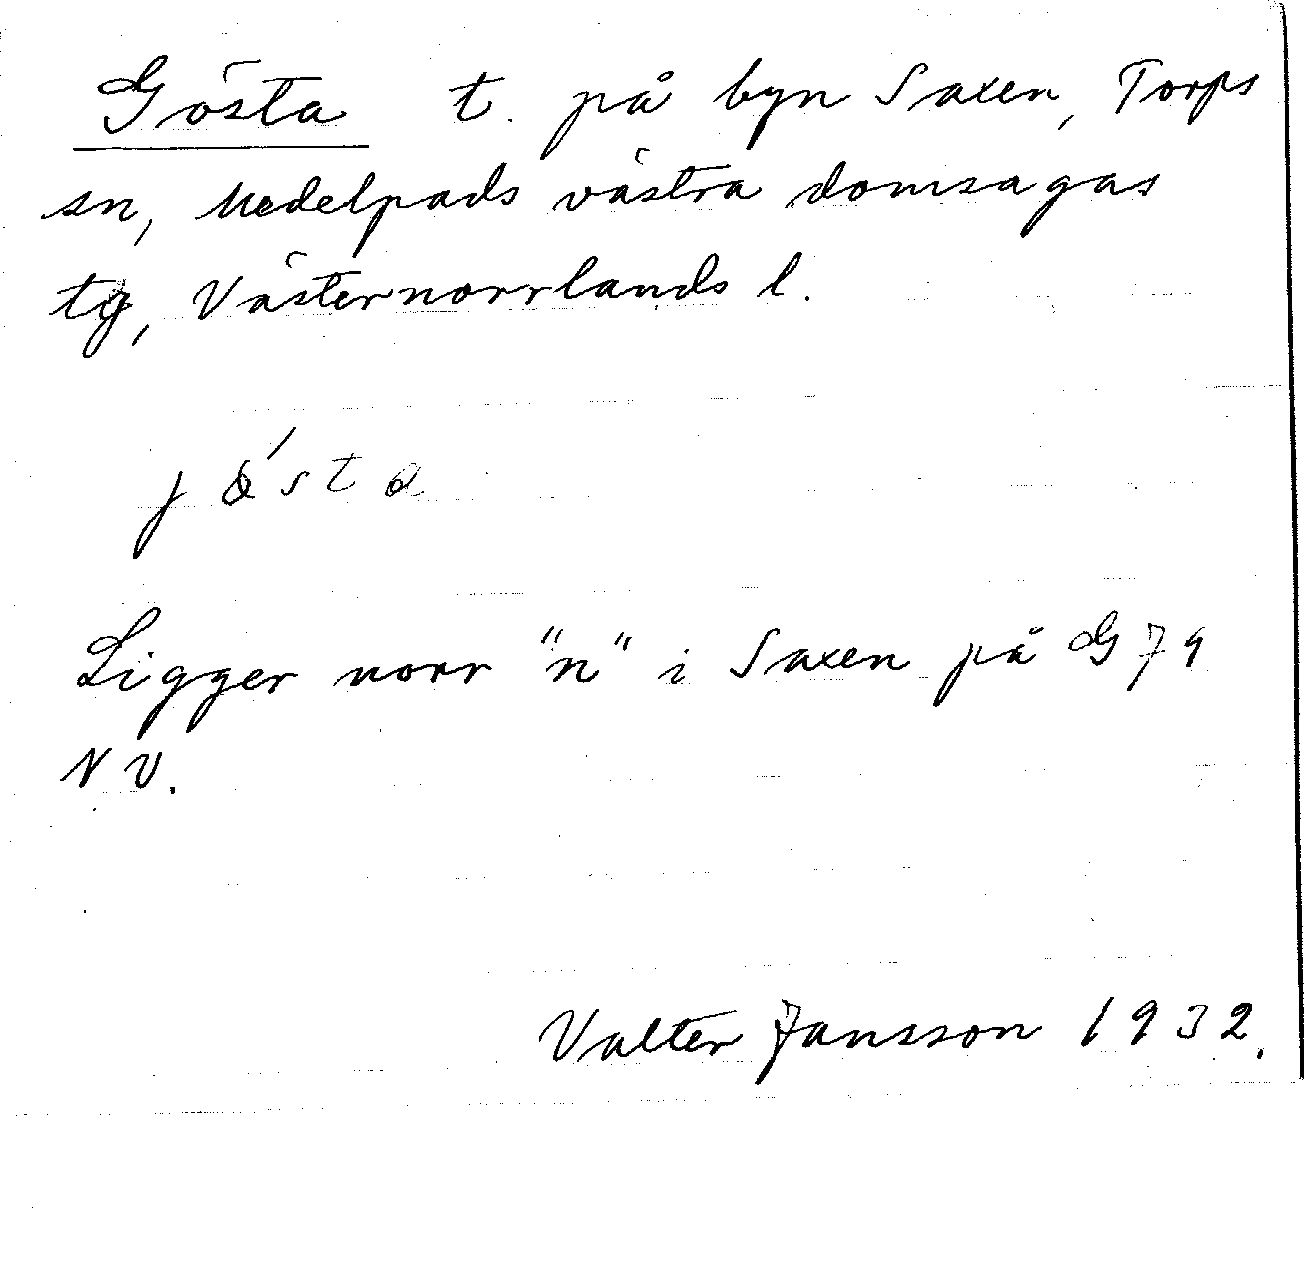 Gösta t. på byn Saxen, Torps
sn, Medelpads västra domsagas
tg, Västernorrlands l.
Ligger norr "n" i Saxen på G79
NV.
Valter Jansson 1932.